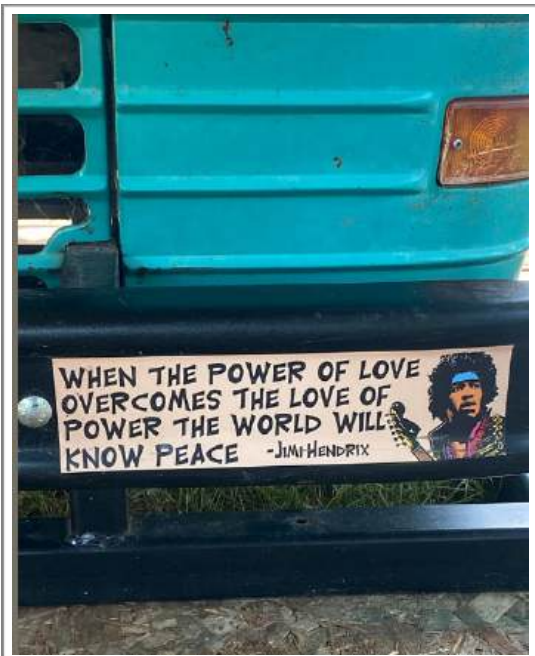 WHEN THE POWER OF LOVE
OVERCOMES THE LOVE OF
POWER THE WORLD WILL
KNOW PEACE -JIMI HENDRIX